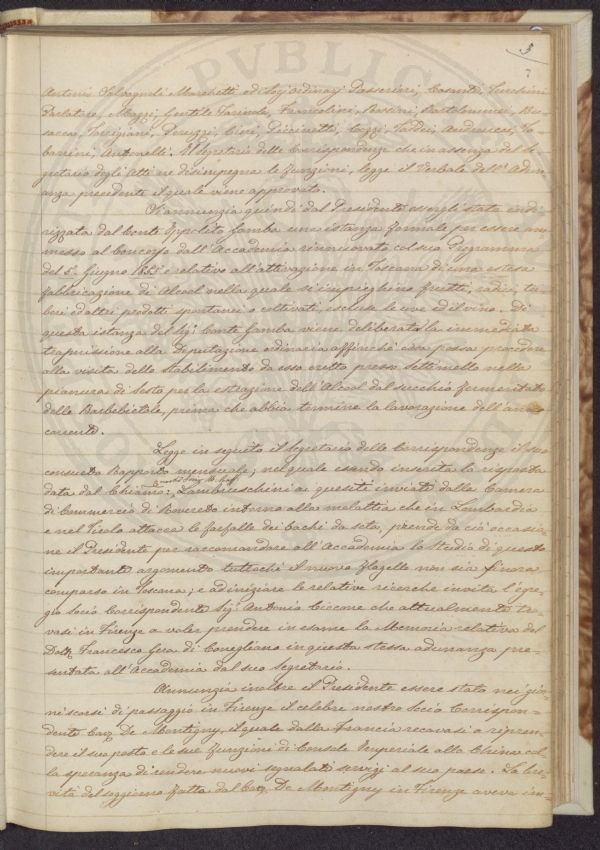 5
7
Salvagnoli Marchetti ed Sigg.i Ordinarj Passerini, Casanti,
Parlatore, Mazzi, Gentile Farinola, Franceschini, Bartolommei,
Peruzzi, Cini, Piccinetti, Cozzi, Taddei, Andreucci,
Antonelli. Il Segretario delle Corrispondenze che in assenza del Se=
gretario degli Atti ne disimpegna le funzioni, legge il Verbale dell'Adu=
nanza precedente il quale viene approvato.
Si annunzia quindi dal Presidente essergli stata indi=
rizzata dal Conte Ippolito Gamba una istanza formale per essere am=
messo al Concorso dall'Accademia rinnuovato col suo Programma
del 5 Giugno 185 e relativo all'attivazione in Toscana di una estesa
fabbricazione di Alcool nella quale si impieghino frutti, radici, tu=
beri ed altri prodotti spontanei o coltivati, escluse le uve ed il vino. Di
questa istanza del Sig. Conte Gamba viene deliberata la immediata
trasmissione alla Deputazione ordinaria affinchè essa possa procedere
alla visita dello stabilimento da esso eretto presso Settimello nella
pianura di Sesto per la estrazione dell'Alcool dal succhio fermentato
delle Barbebietole, prima che abbia termine la lavorazione dell'anno
corrente.
Legge in seguito il Segretario delle Corrispondenze il suo
consueto Rapporto mensuale; nel quale essendo inserita la risposta
data dal Chiarmo. Lambruschini ai quesiti inviati dalla Camera
di Commercio di Rovereto intorno alla malattia che in Lombardia
e nel Tirolo attacca le farfalle dei bachi da seta, prende da ciò occasio=
ne il Presidente per raccomandare all'Accademia lo studio di questo
importante argomento tuttochè il nuovo flagello non sia finora
comparso in Toscana; e ad iniziare le relative ricerche invita l'egre=
gio Socio Corrispondente Sig. Antonio Ciccone che attualmente tro=
vasi in Firenze a voler prendere in esame la Memoria relativa del
Dott. Francesco Gera di Conegliano in questa stessa adunanza pre=
sentata all'Accademia dal suo Segretario.
Annunzia inoltre il Presidente essere stato nei gior=
ni scorsi di passaggio in Firenze il celebre nostro Socio Corrispon=
dente Cav. De Montigny, il quale dalla Francia recavasi a ripren=
dere il suo posto e le sue funzioni di Console Imperiale alla China col=
la speranza di rendere nuovi segnalati servizj al suo paese. La bre=
vità del soggiorno fatto dal Cav. De Montigny in Firenze aveva im=